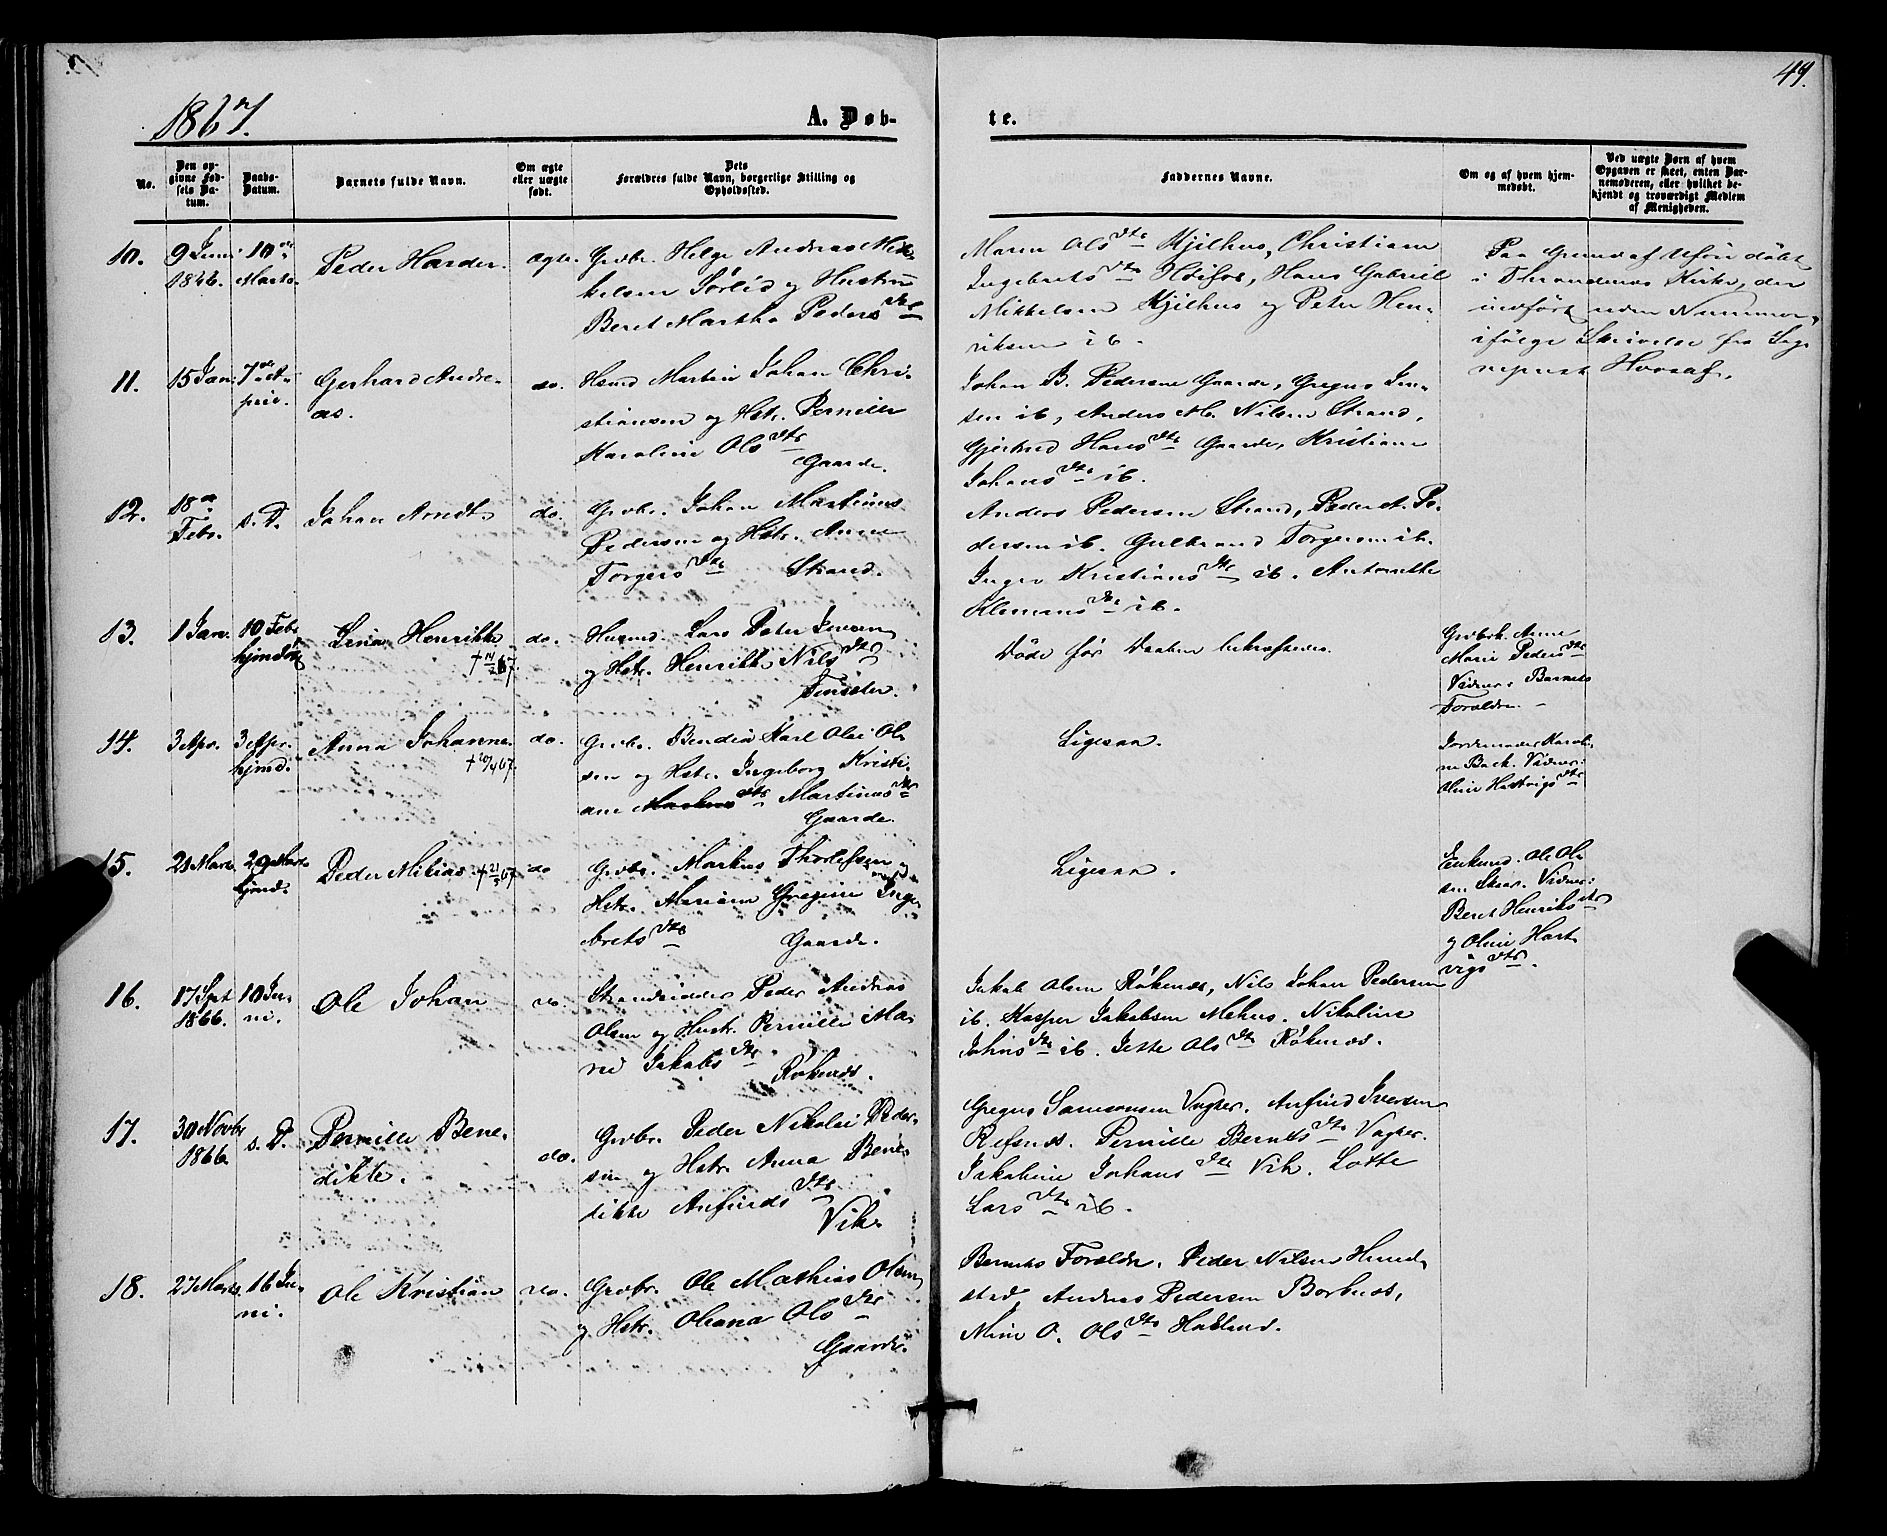 49.
1867.
A. Døb-
te.
No.
Den op-
givne Fød-
sels Da-
tum.
Daabs-
Datum.
Barnets fulde Navn.
Om ægte
eller uægte
født.
Dets
Forældres fulde Navn, borgerlige Stilling og
Opholdssted.
Faddernes Navne.
Om og af hvem hjem-
medøbt.
Ved uægte Børn af hvem
Opgaven er skeet, enten Bar-
nemoderen, eller hvilket be-
kjendt og troværdigt Medlem
af Menigheden.
10.
9 Juni
1866.
10de
Marts.
Peder Harder.
ægte.
Gvbr. Helge Andreas Mik-
kelsen Sørlid og Hustru
Beret Martha Pedersdtr
Maren Olsdtr Kjilhus, Christiane
Ingebrigtsdtr Høifos, Hans Gabriel
Mikkelsen Kjilhus og Peter Hen-
riksen ib.
Paa Grund af Uføre døbt
i Thrandenes Kirke, der
indført uden Nummer,
ifølge Skrivelse fra Sog-
nepræst
11.
15 Jan.
7de A-
pril.
Gerhard Andre-
as.
do.
Hsmd Martin Johan Chri-
stiansen og Hstr. Pernille
Karoline Olsdtr
Gaarde.
Johan B. Pedersen Gaarde, Gregus Jen-
sen ib, Anders M. Nilsen Strand,
Gjertrud Hansdtr Gaarde, Kristiane
Johansdtr ib.
12.
18de
Febr.
s. D.
Johan Arndt
do.
Gvbr. Johan Martinus
Pedersen og Hstr. Anne
Torgersdtr Strand.
Anders Pedersen Strand, Peder A. Pe-
dersen ib. Gulbrand Torgersen ib.
Inger Kristiansdtr ib. Antonette
Klemensdtr ib.
13.
1 Jan.
10 Febr
hjemdøbt
Lina Henrikke
† 14/2 67.
do.
Husmd. Lars Peter Jensen
og Hstr. Henrikke Nilsdtr
Døde før Daaben bekræftedes.
Gvbrk. Anne
Marie Pedersdtr
Vidner: Barnets
Forældre.
14.
3 Apr.
3 Apr.
hjemd.
Anna Johanne.
† 10/4 67.
do.
Gvbr. Bendix Karl Olai Ol-
sen og Hstr. Ingeborg Kristi-
ane Martinusdtr
Gaarde.
Ligesaa.
Jordemoder Karoli-
ne Back. Vidner:
Oline Hartvigsdtr
15.
28 Marts
29 Marts
hjemd.
Peder Mikias. † 21/5 67
do
Gvbr. Markus Thorlefsen og
Hstr. Mariane Gregine Inge-
bretsdtr Gaarde.
Ligesaa.
Enkemd. Ole Ol-
sen Skaar. Vidner:
Beret Henriksdtr
og Oline Hart-
vigsdtr.
16.
17 Sept
1866.
10 Ju-
ni.
Ole Johan
do.
Strandsidder Peder Andreas
Olsen og Hustr. Pernille Ma-
rie Jakobsdtr
Røkenes.
Jakob Olsen Røkenæs, Nils Johan Pedersen
ib. Kasper Jakobsen Melhus. Nikoline
Johnsdtr ib. Jette Olsdtr Røkenæs.
17.
30 Novbr
1866.
s. D.
Pernille Bene-
dikte.
do.
Gvbr. Peder Nikolai Peder-
sen og Hstr. Anna Bene-
dikte Anfindsdtr
Vik.
Gregus Samsonsen Vagter. Anfind Iversen
Refsnæs. Pernille Berntsdtr Vagter.
Jakobine Johansdtr Vik. Lotte
Larsdtr ib.
18.
27 Marts
16 Ju-
ni.
Ole Kristian
do.
Gvbr. Ole Mathias Olsen
og Hstr. Oleana Olsdtr
Gaarde.
Barnets Forældre. Peder Nilsen Hund-
stad, Andreas Pedersen Borkenæs,
O. Olsdtr Halland.